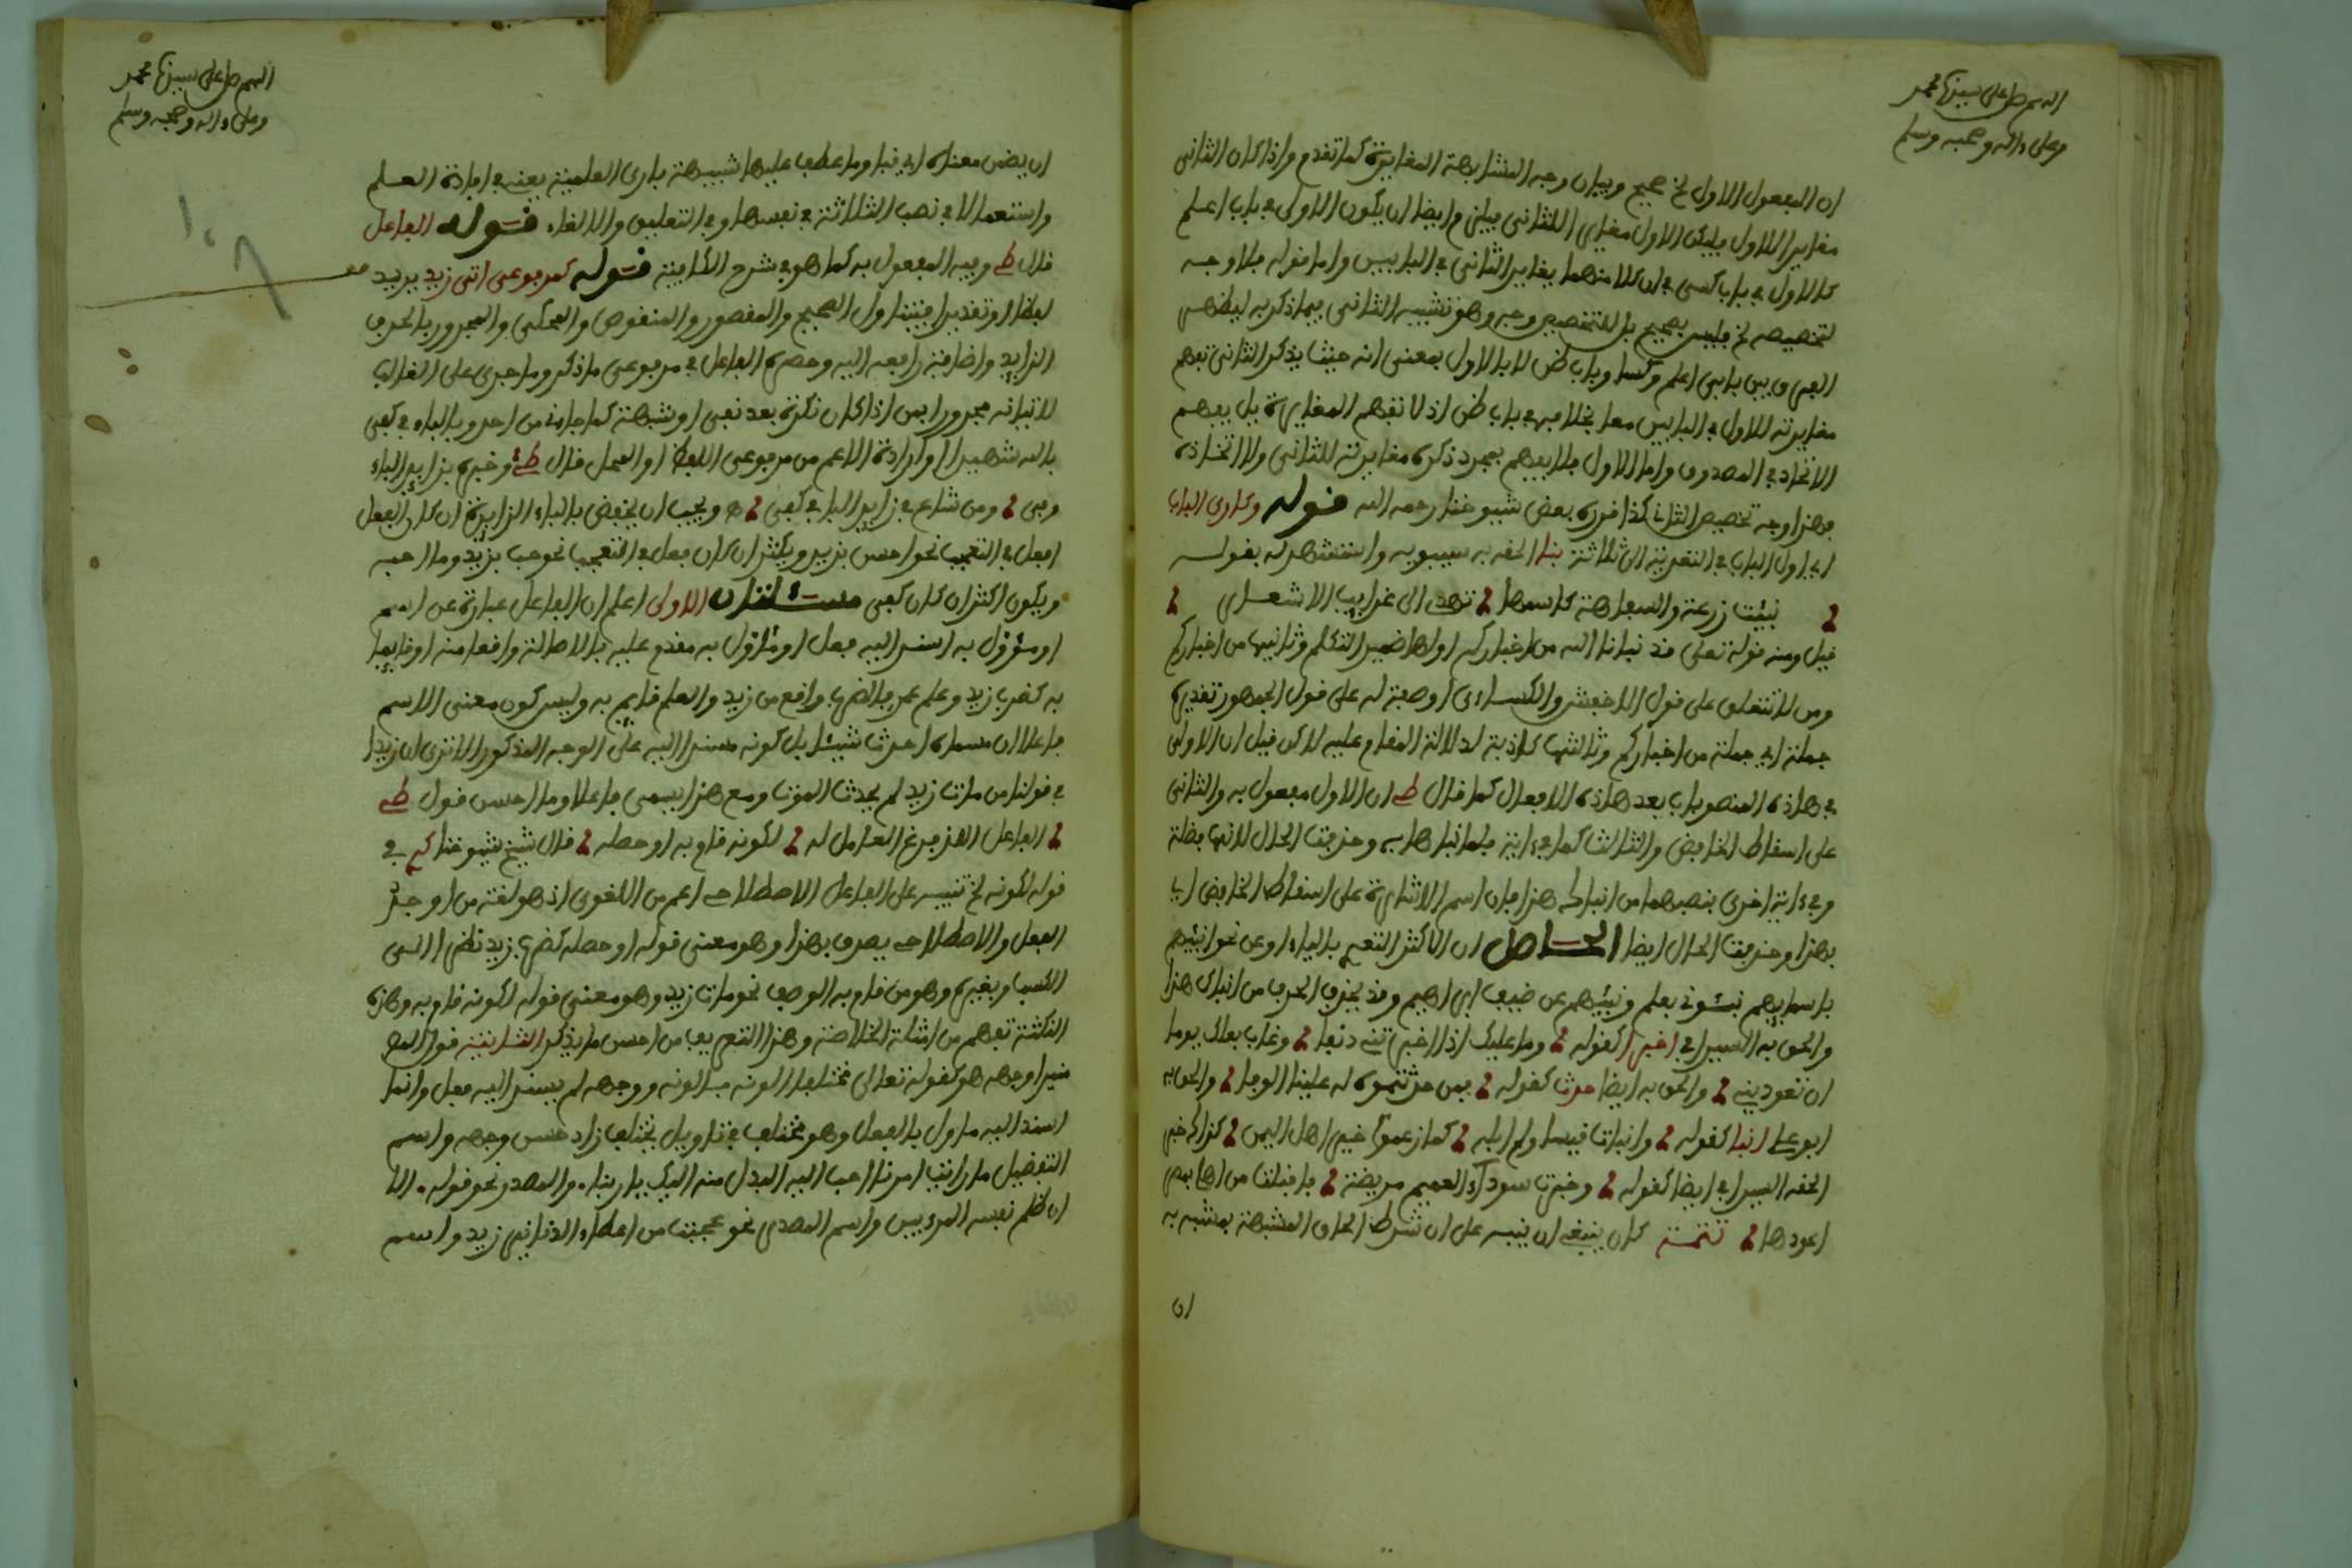 اللهم صل على سيدنا محمد
وعلى ءاله وصحبه وسلم
ان المفعول الاول لخ صحيح وبيان وجه المشابهة المغايرة كما تقدم واذا كان الثانى
مغايرا للاول فليكن الاول مغايرا للثانى فيلزم ايضا ان يكون الاول فى باب اعلم
كالاول فى باب كسى فى ان كلا منهما يغاير الثانى فى البابين واما قوله فلا وجه
لتخصيصه لخ فليس بصحيح بل للتخصيص وجه وهو تشبيه الثانى بما ذكر به ليظهر
الفرق بين بابى اعلم وكسا وباب ظن لا بالاول بمعنى انه حيث يذكر الثانى تفهم
مغايرته للاول فى البابين معا بخلافه فى باب ظن اذ لا تفهم المغايرة بل يفهم
الاتحاد فى المصدوق واما الاول فلا يفهم بمجرد ذكره مغايرته للثانى ولا اتحاده
فهذا وجه تخصيص الثانى كذا قرره بعض شيوخنا رحمه الله قوله وكارى الباب
اى اول الباب فى التعدية الى ثلاثة نبا الحقه به سيبويه واستشهد له بقوله
نبئت زرعة والسفاهة كاسمها تهدى الى غرايب الاشعار
قيل ومنه قوله تعلى قد نبانا الله من اخباركم اولها ضمير التكلم وثانيها من اخباركم
ومن لا تتعلق على قول الاخفش والكساءى او صفة له على قول الجمهور تقديره
جملة اى جملة من اخباركم وثالثها كاذبة لدلالة المقام عليه لاكن قيل ان الاولى
فى هاذه المنصوبات بعد هاذه الافعال كما قال ط ان الاول مفعول به والثانى
على اسقاط الخافض والثالث كما فى ءاية فلما نباها به وحذفت الحال لانها فضلة
وفى ءاية اخرى بنصبهما من انباك هذا فان اسم الاشارة على اسقاط الخافض اى
بهذا وحذفت الحال ايضا الحاصل ان الاكثر التعدى بالباء او عن نحو انبئهم
باسمايهم نبئونى بعلم ونبئهم عن ضيف ابراهيم وقد يحذف الحرف من انباك هذا
والحق به السيرافى اخبر كقوله وما عليك اذا اخبرتنى دنفا وغاب بعلك يوما
ان تعودينى والحق به ايضا حدث كقوله فمن حدثتموه له علينا الولا والحق به
ابو على انبا كقوله وانبات قيسا ولم ابله كما زعموا خير اهل اليمن كذاك خبر
الحقه السيرافى ايضا كقوله وخبرت سوداء الغميم مريضة فاقبلت من اهلى بمصر
اعودها تتمة كان ينبغى ان ينبه على ان شرط الحاق المشبهة بمشبه به
ان
اللهم صل على سيدنا محمد
وعلى ءاله وصحبه وسلم
ان يضمن معناه اى نبا وما عطف عليها شبيهة بارى العلمية يعنى فى افادة العلم
واستعمالا فى نصب الثلاثة فى نفسها وفى التعليق والالغاء قوله الفاعل
قال ط وفيه المفعول به كما هو فى شرح الكافية قوله كمرفوعى اتى زيد يريد
لفظا او تقديرا فيتناول الصحيح والمقصور والمنقوص والمحكى والمجرور بالحرف
الزايد واضافة رافعه اليه وحصره الفاعل فى مرفوعى ما ذكر وما جرى على الغالب
لاتيانه مجرورا بمن اذا كان نكرة بعد نفى او شبهه كما جاءنى من احد وبالباء فى كفى
بالله شهيدا او ارادة الاعم من مرفوعى اللفظ او المحل قال ط وخبره بزايد الباء
وفى ومن شاع فى زايد البا فى كفى ه ويجب ان يخفض بالباء الزايدة ان كان الفعل
افعل فى التعجب نحو احسن بزيد ويكثر ان كان فعل فى التعجب نحو حب بزيد وما احبه
ويكون اكثر ان كان كفى مسئلتان الاولى اعلم ان الفاعل عبارة عن اسم
او مؤول به اسند اليه فعل او مؤول به مقدم عليه بالاصالة واقعا منه او قايما
به كضرب زيد وعلم عمر فالضرب واقع من زيد والعلم قايم به وليس كون معنى الاسم
فاعلا ان مسماه احدث شيئا بل كونه مسندا اليه على الوجه المذكور الا ترى ان زيدا
فى قولنا من مات زيد لم يحدث الموت ومع هذا يسمى فاعلا وما احسن قول ط
الفاعل الذ فرغ العامل له لكونه قام به او حصله قال شيخ شيوخنا كم فى
قوله لكونه لخ تنبيه على الفاعل الاصطلاحى اعم من اللغوى اذ هو لغة من اوجد
الفعل والاصطلاحى يصدق بهذا وهو معنى قوله او حصله كضرب زيد نظرا الى
الكسب وبغيره وهو من قام به الوصف نحو مات زيد وهو معنى قوله لكونه قام به وهذه
النكتة تفهم من امثلة الخلاصة وهذا التعريف من احسن ما يذكر الثانية قوله
منيرا وجهه هو كقوله تعالى مختلفا الونه فالونه ووجهه لم يسند اليه فعل وانما
اسند اليه ماول بالفعل وهو مختلف فى تاويل يختلف زاد حسن وجهه واسم
التفضيل ما رايت امرءا احب اليه البذل منه اليك يا ربنا. والمصدر نحو قوله. الا
ان ظلم نفسه المرء بين واسم المصدر نحو عجبت من اعطاء الدنانير زيد واسم